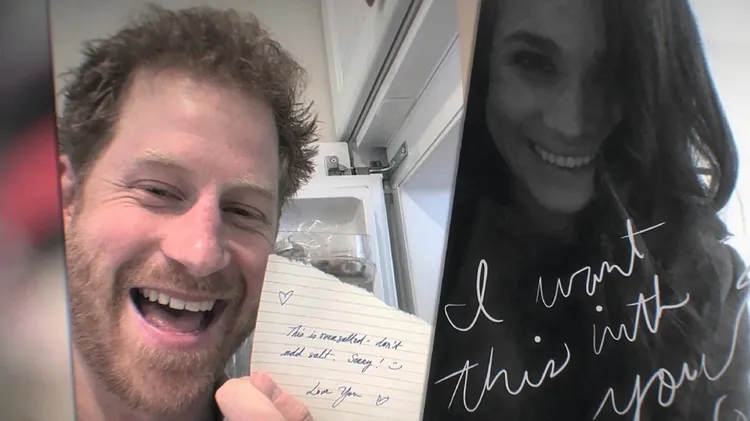 This is oversalted - don't
add salt. Sorry!
Love You
I want
this with
you